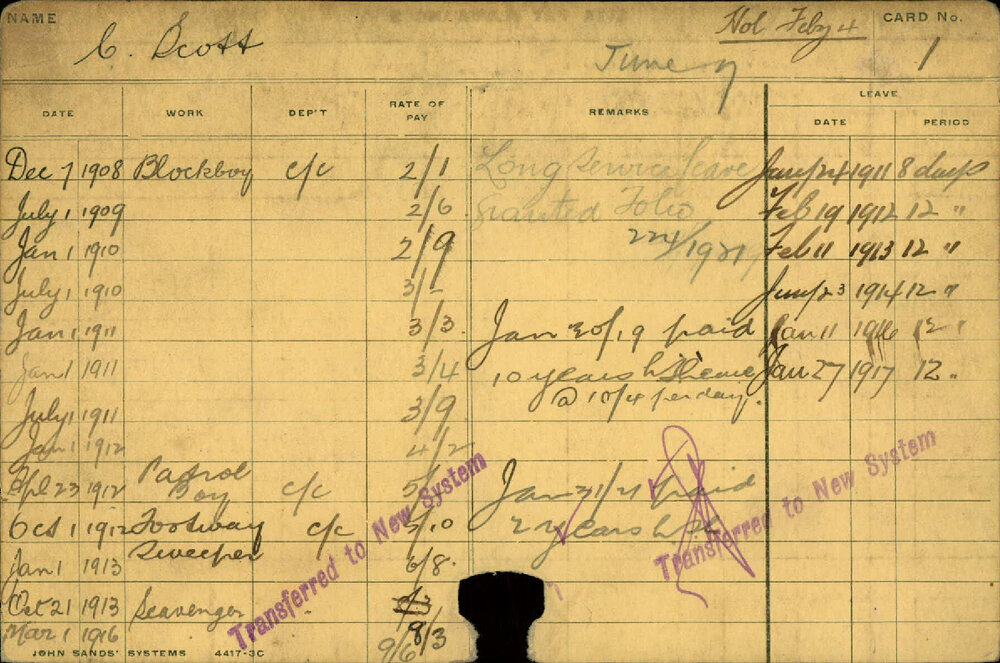 NAME
C. Scott
Hol Feby 4
June 7
CARD No.
1
DATE WORK DEP'T RATE OF PAY REMARKS LEAVE DATE PERIOD
Dec 7 1908 Blockboy c/c 2/1 Long service leave Jany 24 1911 8 days
July 1 1909 2/6 Granted Folio Feb 19 1912 12 "
Jan 1 1910 2/9 Feb 11 1913 12 "
July 1 1910 3/- 1914 12 "
Jan 1 1911 3/3 Jan 30/19 paid Jan 11 1916 12 "
Jan 1 1911 3/4 10 years Jan 27 1917 12 "
July 1 1911 3/9 @ 10/4 per day.
Jan 1 1912 4/2
Apl 23 1912 Patrol Boy c/c 5/ Jan 31/21 paid
Oct 1 1912 Footway Sweeper c/c /10 2 years
Jan 1 1913 6/8
Oct 21 1913 Scavenger
8/3
Mar 1 1916 9/6
Transferred to New System
Transferred to New System
JOHN SANDS' SYSTEMS 4417-3C